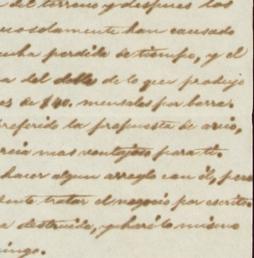 del terreno y despues los
solamente han causado
perdida de tiempo, y el
a del doble de lo que produjo
es de $40. mensales por barra.
referido la propuesta de
mas ventajosa para ti.
hacer algun arreglo con él, pero
tratar el negocio por escrito.
a destruida, y haré lo mismo